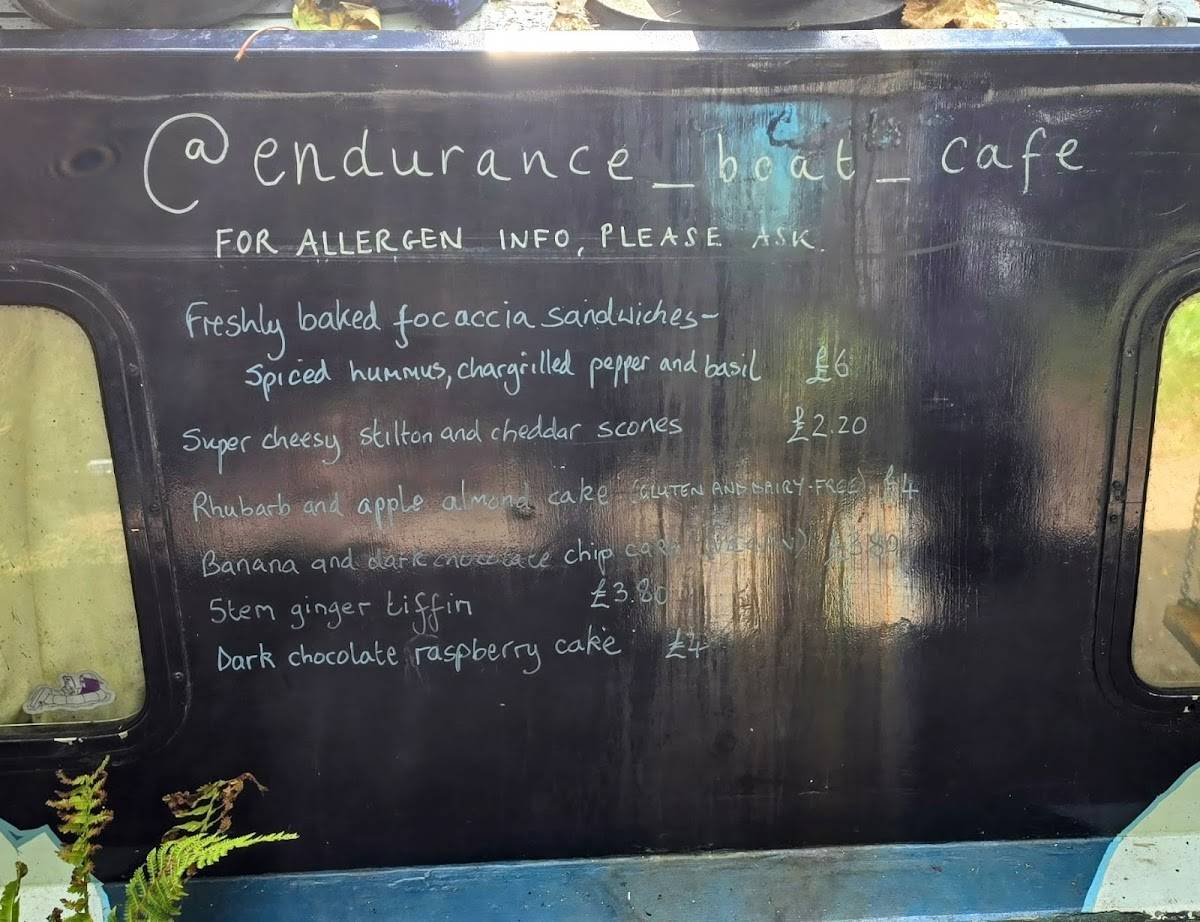 @endurance_boat_cafe
FOR ALLERGEN INFO, PLEASE ASK.
Freshly baked focaccia sandwiches-
Spiced hummus, chargrilled pepper and basil £6
Super cheesy stilton and cheddar scones £2.20
Rhubarb and apple almond cake (GLUTEN AND DAIRY-FREE) £4
Banana and dark chocolate chip cake (VEGAN) £3.80
Stem ginger tiffin £3.80
Dark chocolate raspberry cake £4